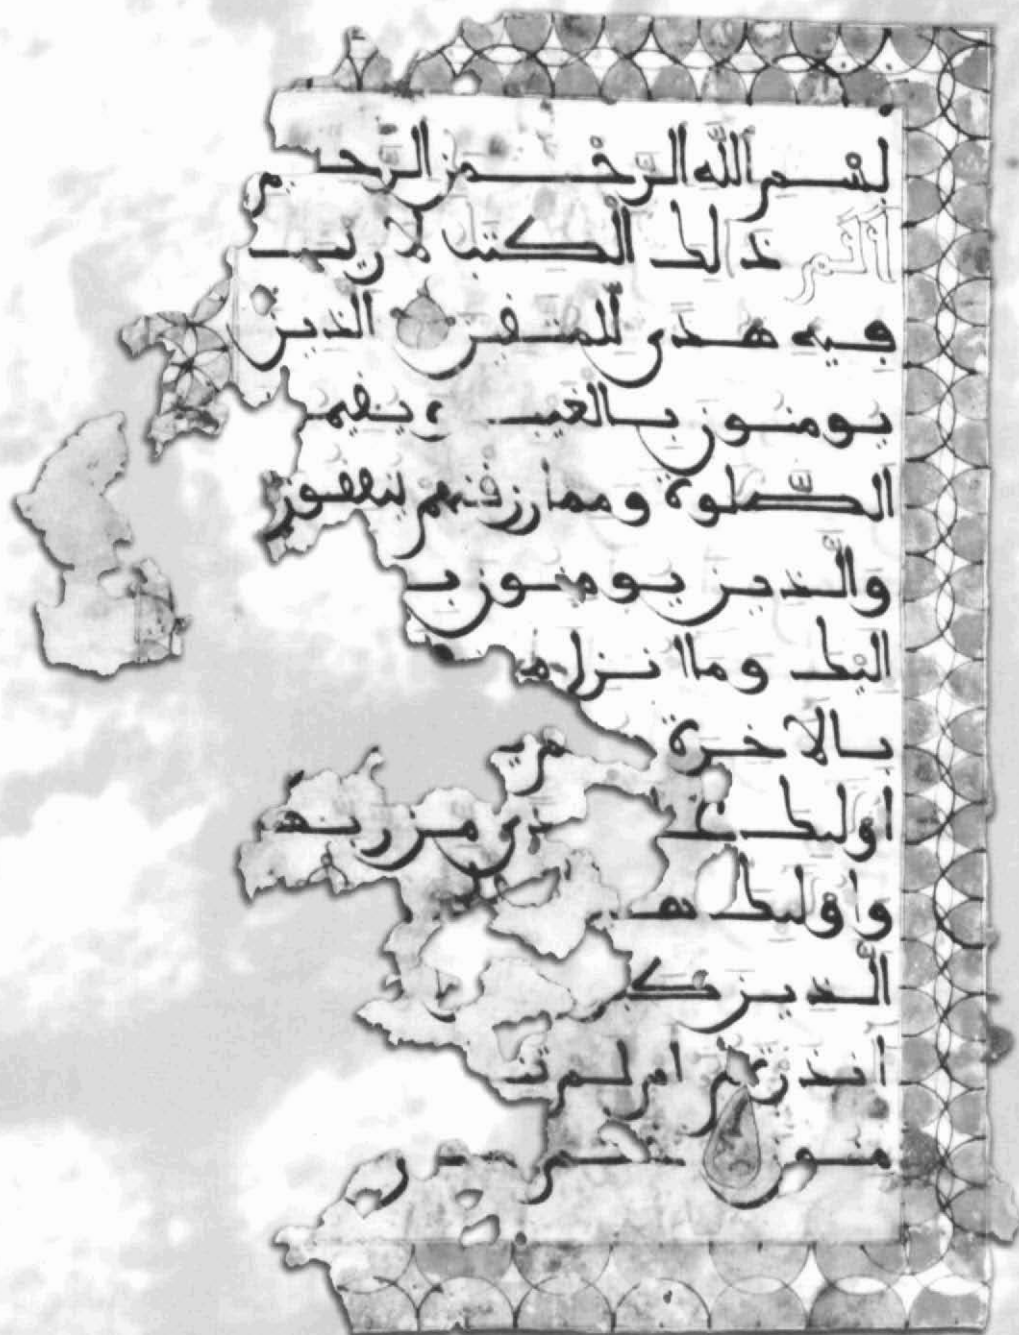 بسم الله الرحمن الرحيم
الم ذلك الكتب لا ريب
فيه هدى للمتقين الذين
يومنون بالغيب ويقيمو
الصلوة ومما رزقنهم ينفقون
والذين يومنون ب
اليك وما انزل م
بالاخرة
اولئك من ربهم
واولئك هم
الذين ك
انذرتهم ام لم تن
منو ختم